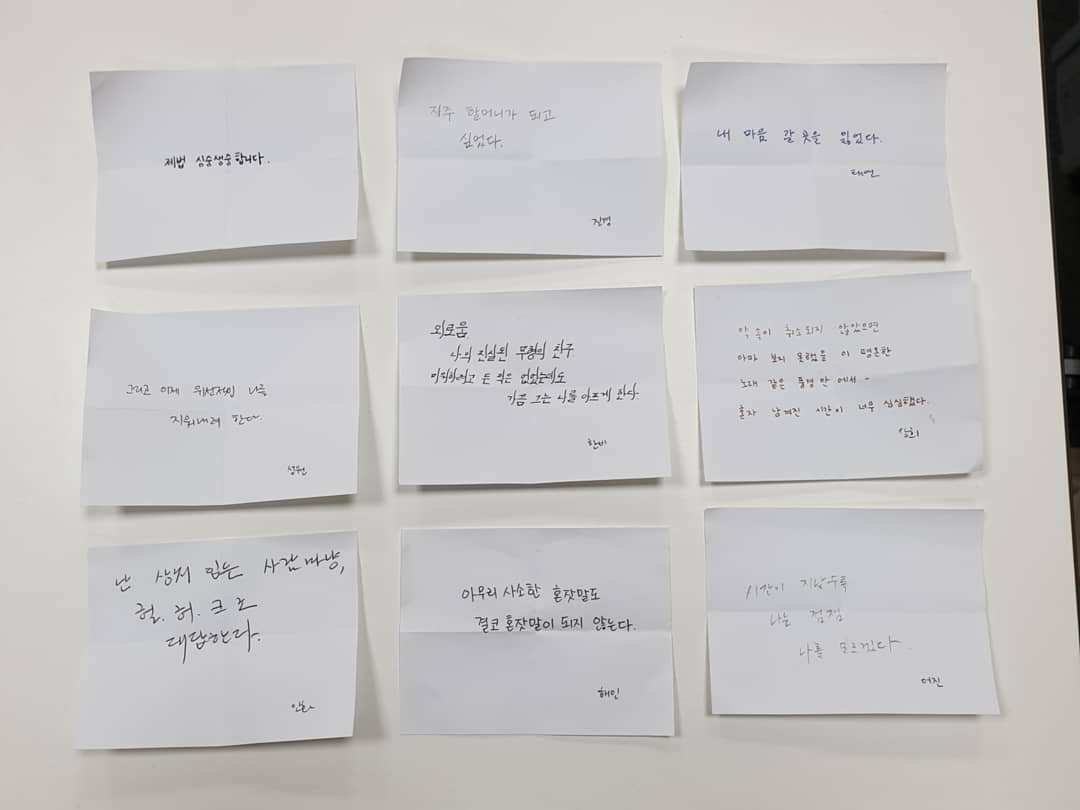 제법 싱숭생숭합니다.
지주 할머니가 되고
싶었다.
진경
내 마음 갈 곳을 잃었다.
태연
그리고 이제 위선적인 나를
지워내려 한다.
성원
외로움
나의 진실된 무형의 친구
의지하려고 든 적은 없었는데도
가끔 그는 나를 아프게 한다.
한비
약속이 취소되지 않았으면
아마 보지 못했을 이 평온한
노래 같은 풍경 안에서-
혼자 남겨진 시간이 너무 심심했다.
난 상처 입은 사람마냥,
헐. 허. 크크
대답한다.
인화
아무리 사소한 혼잣말도
결코 혼잣말이 되지 않는다.
해인
시간이 지날수록
나는 점점
나를 모르겠다.
어진